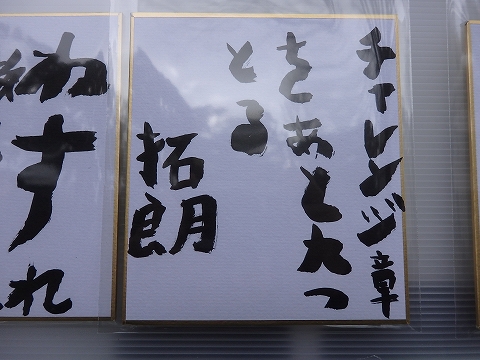 チャレンジ章
をあと九つ
とる
拓朗
わすれ